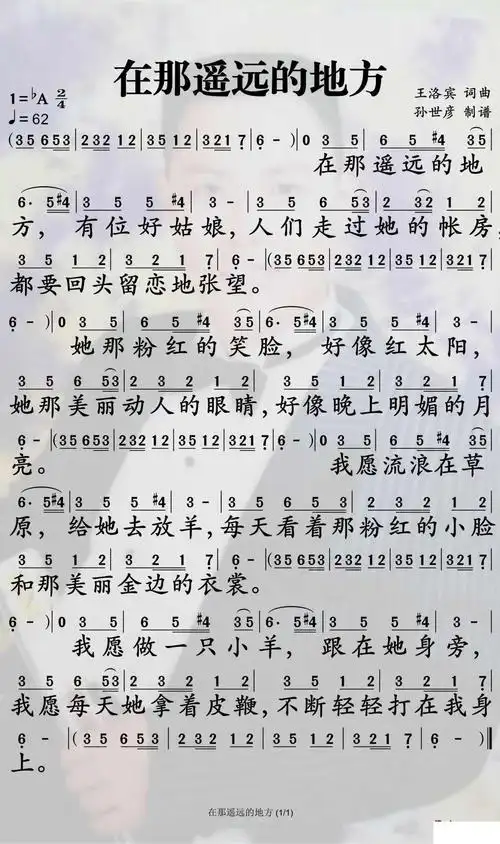 在那遥远的地方
1=♭A 2/4
王洛宾 词曲
♩=62
孙世彦 制谱
(35 653|232 12|35 12|321 7|6 -)|0 3 5|6 5 #4 35|
在那遥远的地
6· 5#4|3 5 5 #4|3 -|3 5 6 53|2 3 2 1 2|
方，有位好姑娘，人们走过她的帐房，
3 5 1 2|3 2 1 7|6 -|(35 653|232 12|35 12|321 7|
都要回头留恋地张望。
6 -)|0 3 5|6 5 #4 35|6· 5#4|3 5 5 #4|3 -|
她那粉红的笑脸，好像红太阳，
3 5 6 53|2 3 2 1 2|3 5 1 2|3 2 1 7|
她那美丽动人的眼睛，好像晚上明媚的月
6 -|(35 653|232 12|35 12|321 7|6 -)|0 3 5|6 5 #4 35|
亮。我愿流浪在草
6· 5#4|3 5 5 #4|3 -|3 5 6 5 3|2 3 2 1 2|
原，给她去放羊，每天看着那粉红的小脸
3 5 1 2|3 2 1 7|6 -|(35 653|232 12|35 12|321 7|
和那美丽金边的衣裳。
6 -)|0 3 5|6 5 #4 35|6· 5#4|3 5 5 #4|3 -|
我愿做一只小羊，跟在她身旁，
3 5 6 53|2 3 2 1 2|3 5 1 2|3 2 1 7|
我愿每天她拿着皮鞭，不断轻轻打在我身
6 -|(35 653|232 12|35 12|321 7|6 -)‖
上。
在那遥远的地方 (1/1)